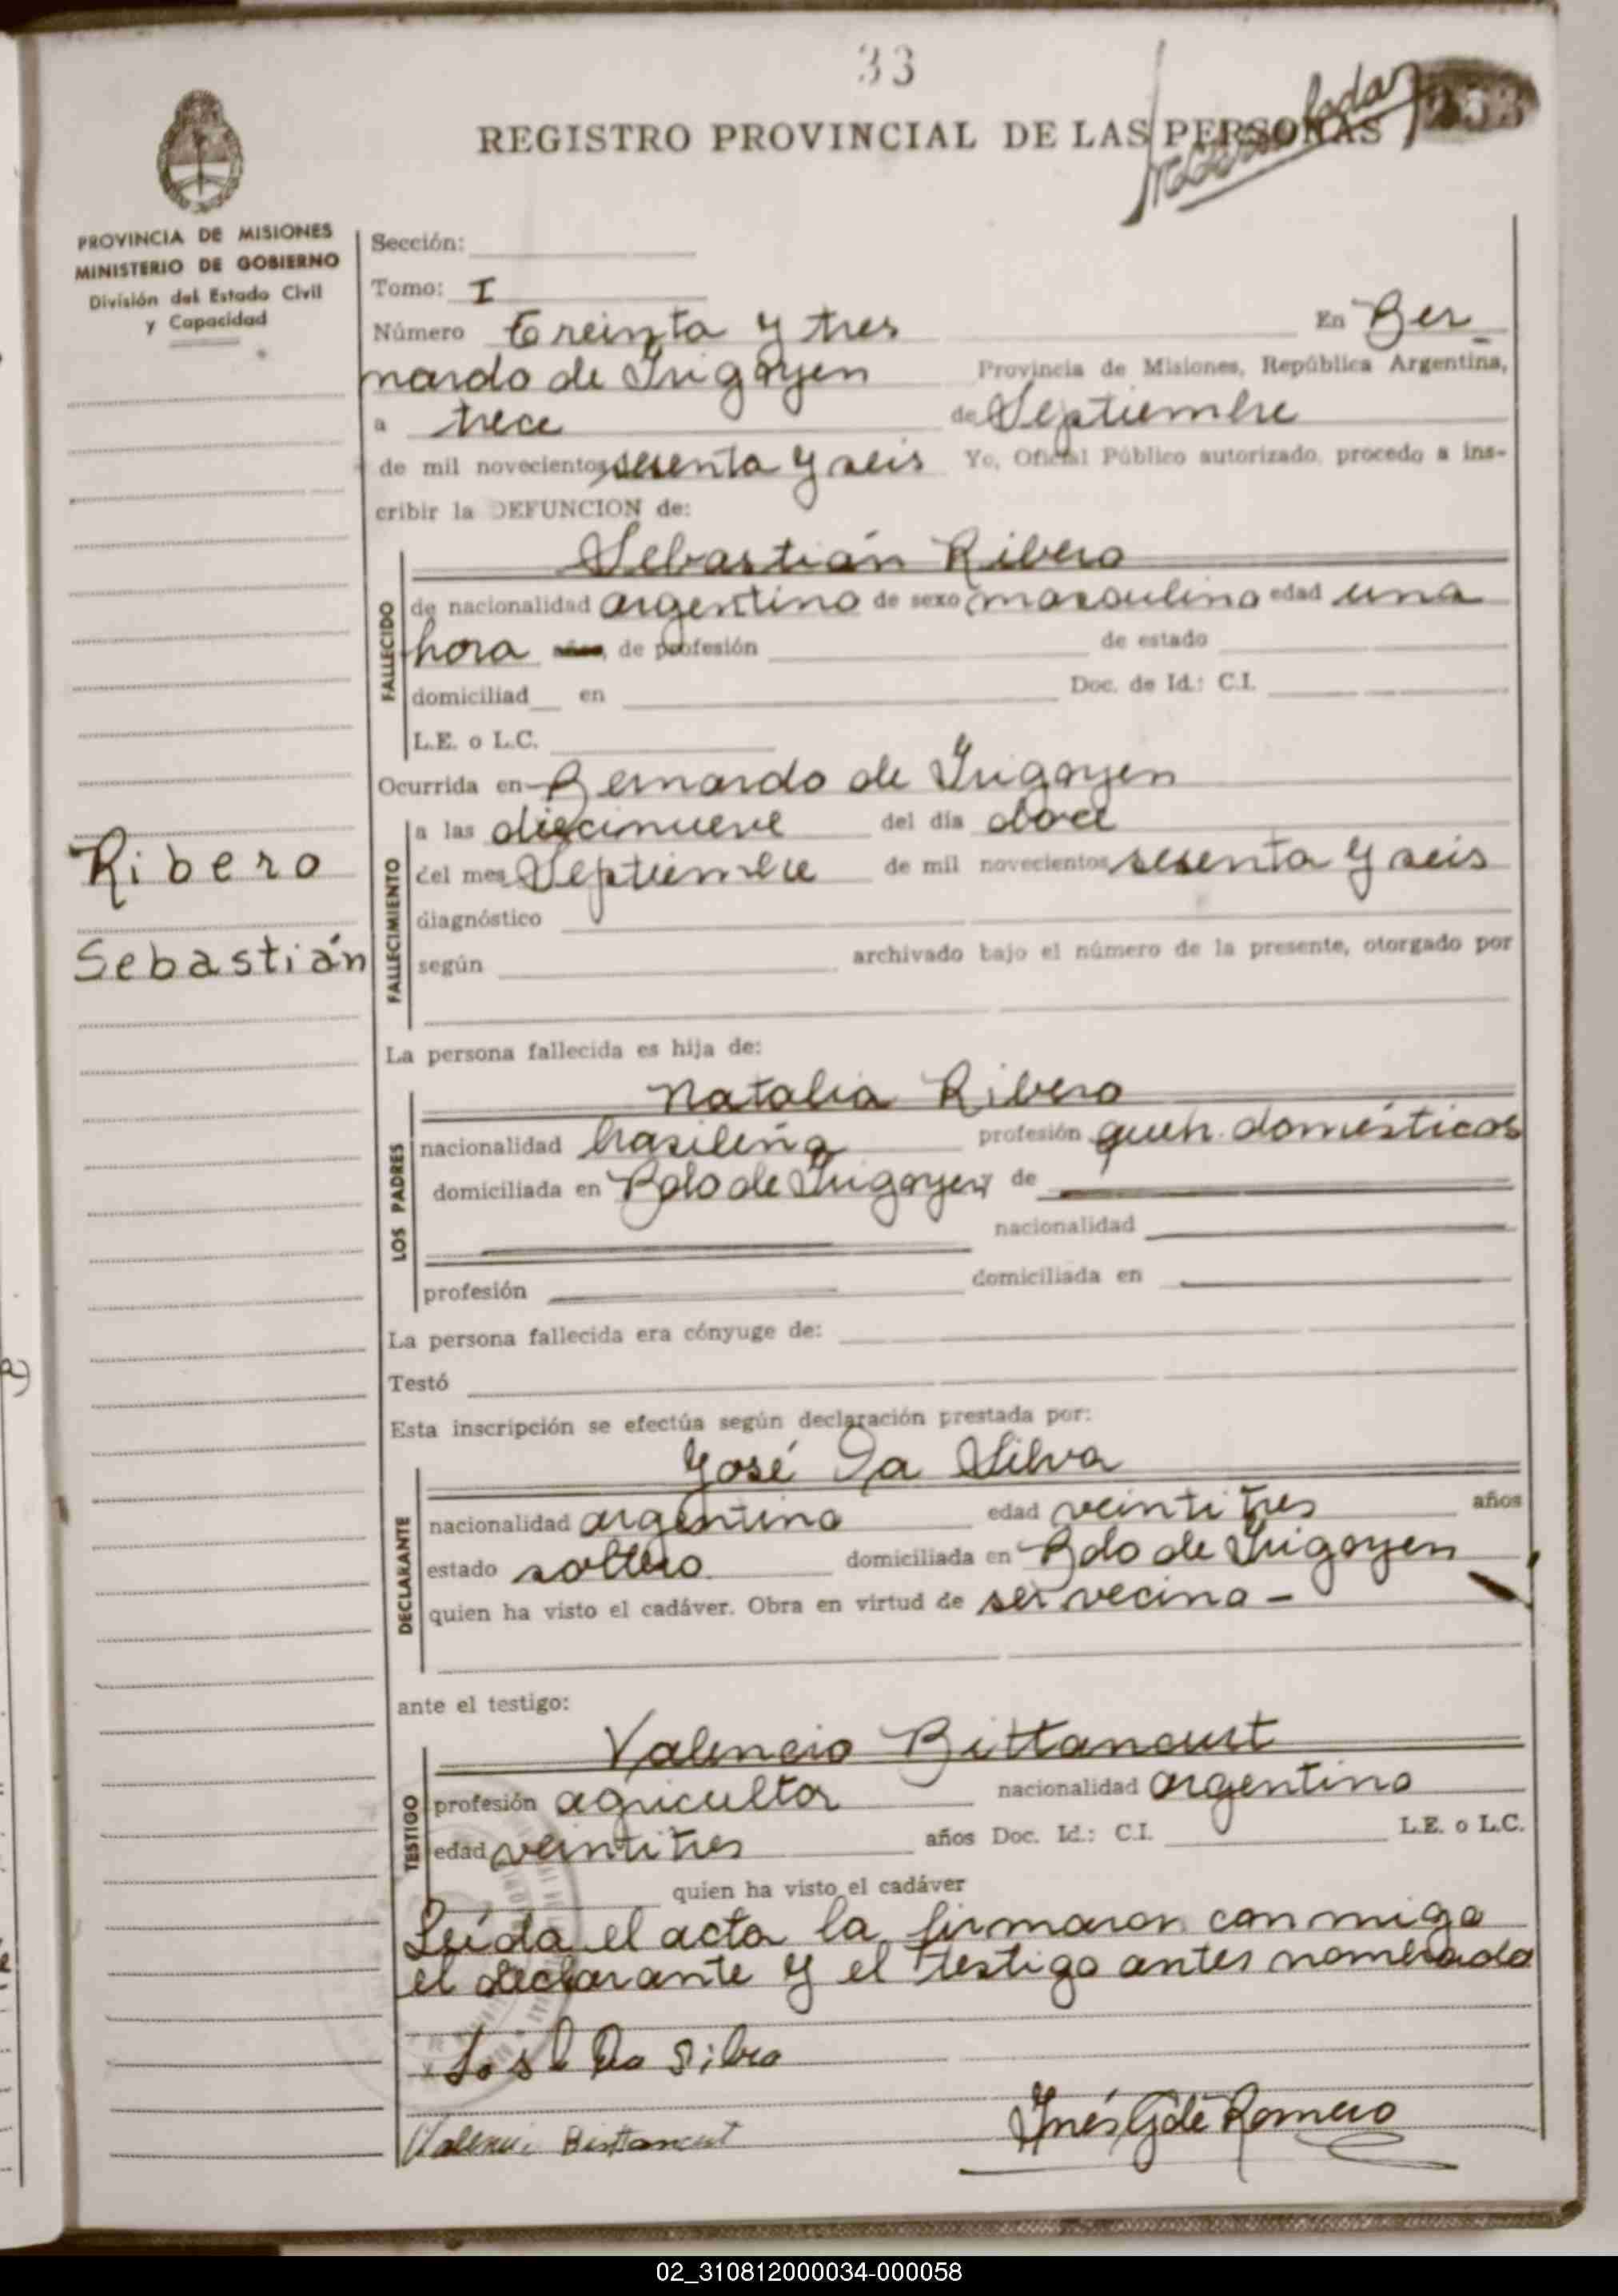 33
REGISTRO PROVINCIAL DE LAS PERSONAS
PROVINCIA DE MISIONES
MINISTERIO DE GOBIERNO
División del Estado Civil
y Capacidad
Sección:
Tomo: I
Número Treinta y tres En Ber
nardo de Irigoyen Provincia de Misiones, República Argentina,
a trece de Septiembre
de mil novecientos sesenta y seis Yo, Oficial Público autorizado, procedo a ins-
cribir la DEFUNCION de:
Sebastián Ribero
FALLECIDO
de nacionalidad argentino de sexo masculino edad una
hora años, de profesión de estado
domiciliad en Doc. de Id.: C.I.
L.E. o L.C.
Ocurrida en Bernardo de Irigoyen
a las diecinueve del día doce
Ribero
FALLECIMIENTO
del mes Septiembre de mil novecientos sesenta y seis
diagnóstico
Sebastián
según archivado bajo el número de la presente, otorgado por
La persona fallecida es hija de:
Natalia Ribero
LOS PADRES
nacionalidad brasileña profesión queh. domésticos
domiciliada en Bdo de Irigoyen y de
nacionalidad
profesión domiciliada en
La persona fallecida era cónyuge de:
Testó
Esta inscripción se efectúa según declaración prestada por:
José Da Silva
DECLARANTE
nacionalidad argentino edad veintitres años
estado soltero domiciliada en Bdo de Irigoyen
quien ha visto el cadáver. Obra en virtud de ser vecino -
ante el testigo:
Valencio Bittancurt
TESTIGO
profesión agricultor nacionalidad argentino
edad veintitres años Doc. Id.: C.I. L.E. o L.C.
quien ha visto el cadáver
Leída el acta la firmaron conmigo
el declarante y el testigo antes nombrado
José Da Silva
Inés G de Romero
Valenci Bittancurt
02_310812000034-000058